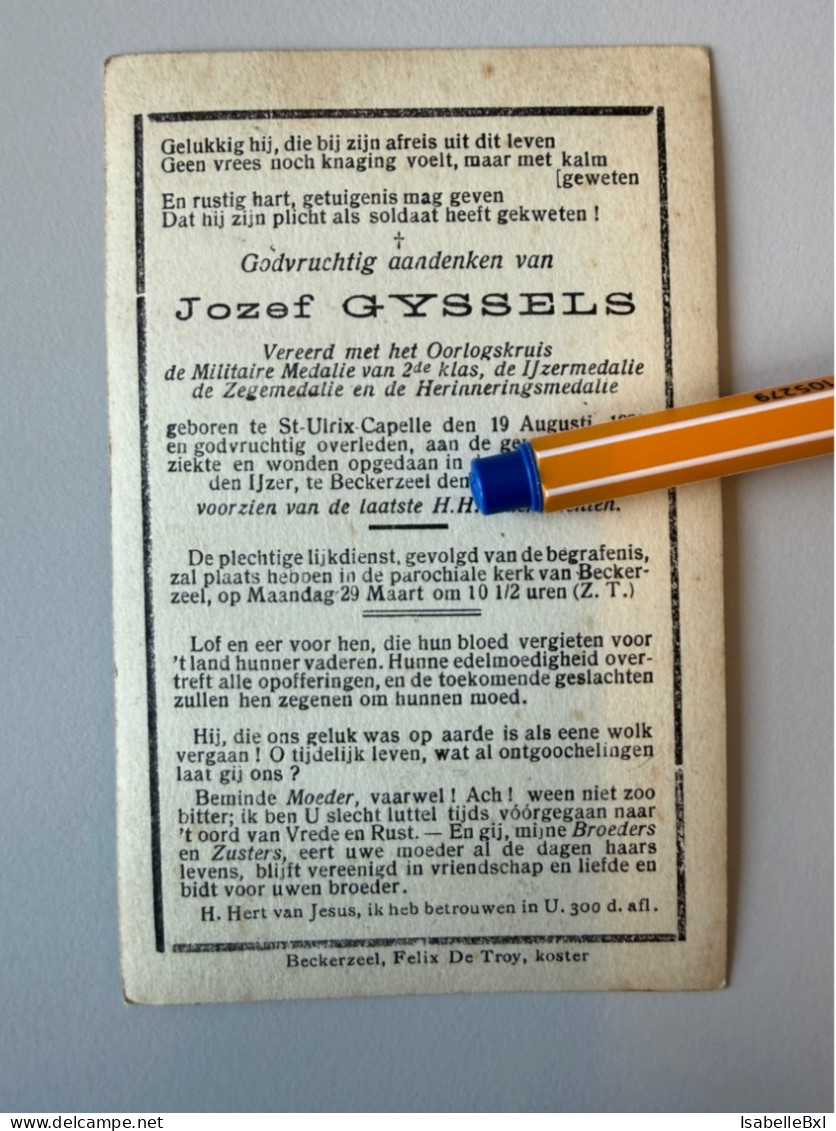 Gelukkig hij, die bij zijn afreis uit dit leven
Geen vrees noch knaging voelt, maar met kalm
[geweten
En rustig hart, getuigenis mag geven
Dat hij zijn plicht als soldaat heeft gekweten !
†
Godvruchtig aandenken van
Jozef GYSSELS
Vereerd met het Oorlogskruis
de Militaire Medalie van 2de klas, de IJzermedalie
de Zegemedalie en de Herinneringsmedalie
geboren te St-Ulrix-Capelle den 19 Augusti
en godvruchtig overleden, aan de
ziekte en wonden opgedaan in
den IJzer, te Beckerzeel den
voorzien van de laatste H.H.
De plechtige lijkdienst, gevolgd van de begrafenis,
zal plaats hebben in de parochiale kerk van Becker-
zeel, op Maandag 29 Maart om 10 1/2 uren (Z. T.)
Lof en eer voor hen, die hun bloed vergieten voor
't land hunner vaderen. Hunne edelmoedigheid over-
treft alle opofferingen, en de toekomende geslachten
zullen hen zegenen om hunnen moed.
Hij, die ons geluk was op aarde is als eene wolk
vergaan ! O tijdelijk leven, wat al ontgoochelingen
laat gij ons ?
Beminde Moeder, vaarwel ! Ach ! ween niet zoo
bitter; ik ben U slecht luttel tijds vóórgegaan naar
't oord van Vrede en Rust. — En gij, mijne Broeders
en Zusters, eert uwe moeder al de dagen haars
levens, blijft vereenigd in vriendschap en liefde en
bidt voor uwen broeder.
H. Hert van Jesus, ik heb betrouwen in U. 300 d. afl.
Beckerzeel, Felix De Troy, koster
105279
IsabelleBxl